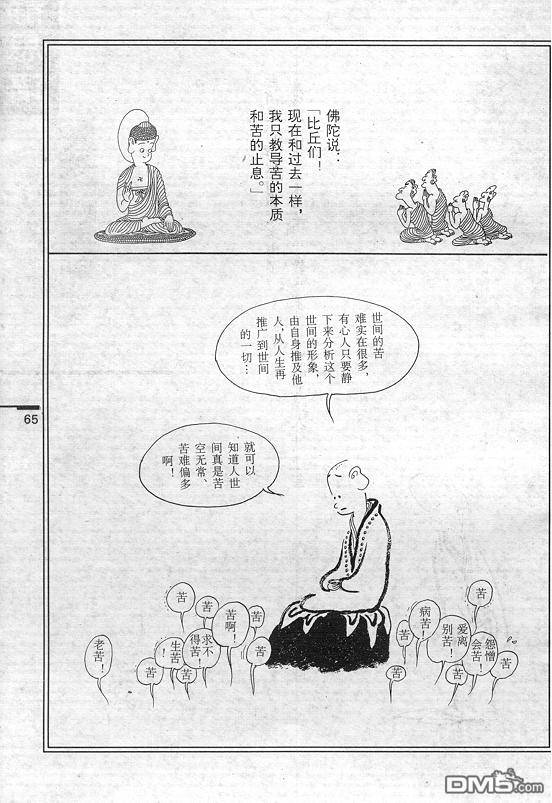 佛陀说：
「比丘们！
现在和过去一样，
我只教导苦的本质
和苦的止息。」
世间的苦
难实在很多，
有心人只要静
下来分析这个
世间的形象，
由自身推及他
人，从人生再
推广到世间
的一切…
就可以
知道人世
间真是苦
空无常、
苦难偏多
啊！
65
苦
怨憎
会苦！
苦
爱离
别苦！
病
苦！
苦
苦
苦
苦
苦
苦啊！
苦
求不
得苦！
苦
生苦
！
苦
苦
老苦！
DM5.com